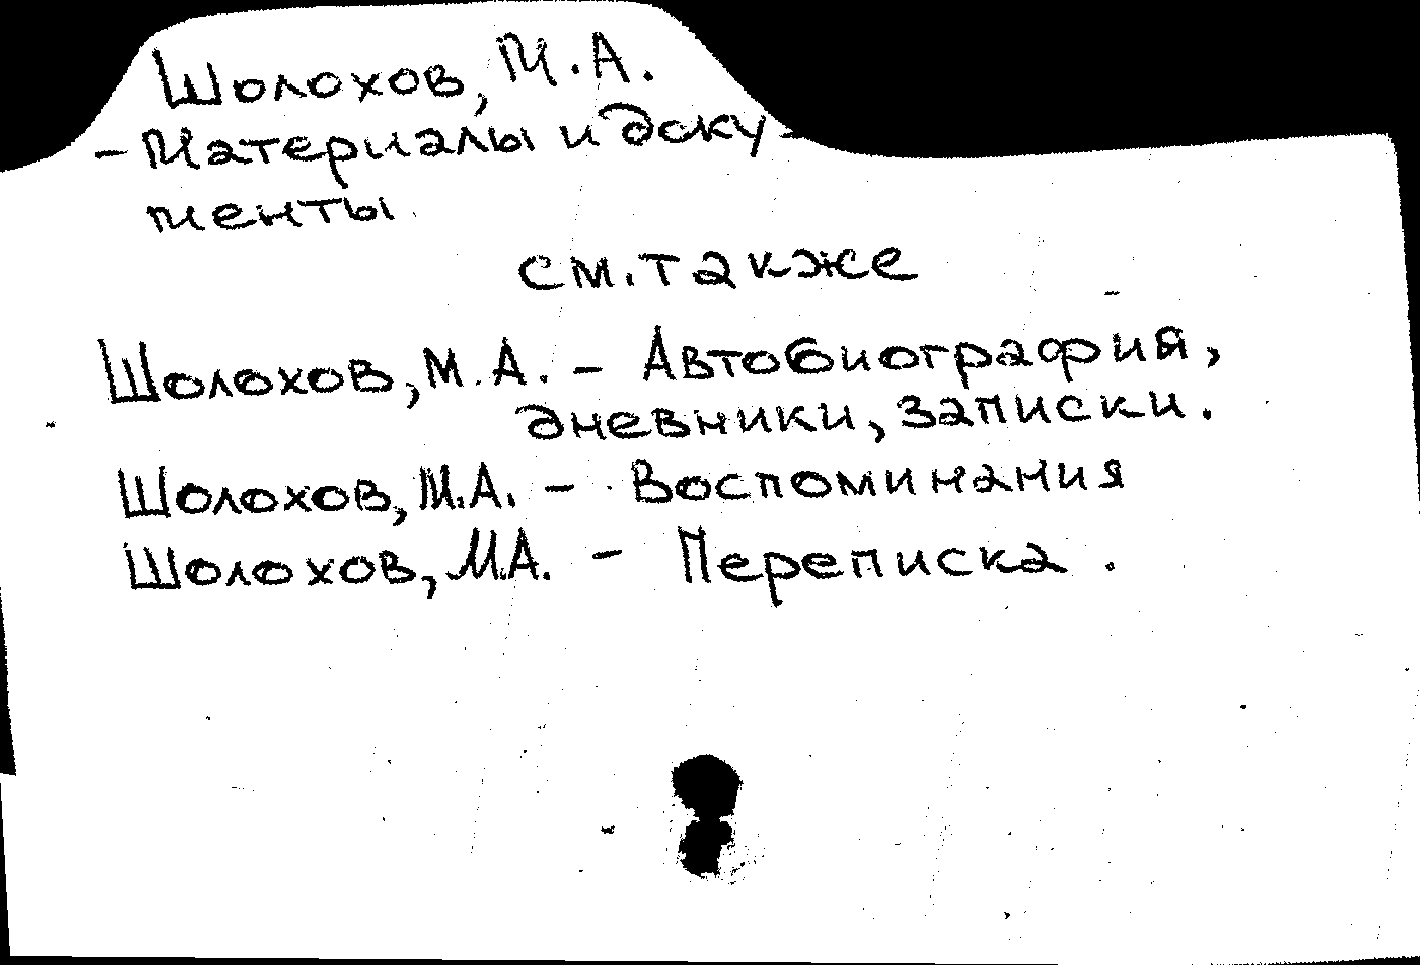 Шолохов, М.А.
- Материалы и доку-
менты
см. также
Шолохов, М.А. - Автобиографий,
дневники, записки.
Шолохов, М.А. - Воспоминания
Шолохов, М.А. - Переписка.